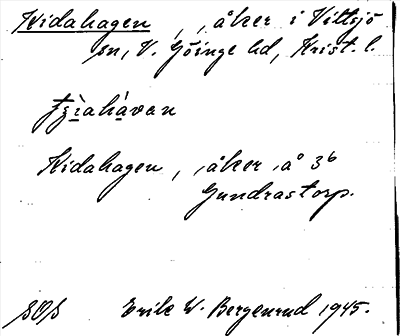 Kidahagen, , åker i Vittsjö
sn, V. Göinge hd, Krist. l.
Kidahagen, , åker å 3⁶
Gundrastorp.
Erik W. Bergenrud 1945.